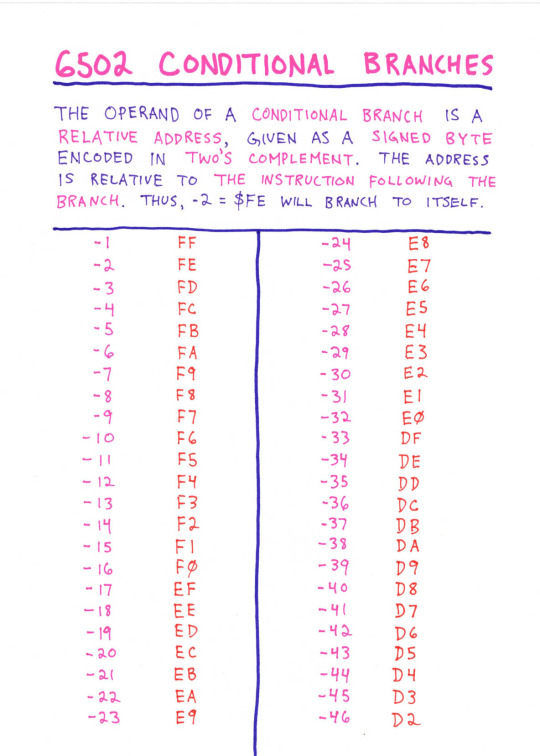 6502 CONDITIONAL BRANCHES
THE OPERAND OF A CONDITIONAL BRANCH IS A
RELATIVE ADDRESS, GIVEN AS A SIGNED BYTE
ENCODED IN TWO'S COMPLEMENT. THE ADDRESS
IS RELATIVE TO THE INSTRUCTION FOLLOWING THE
BRANCH. THUS, -2 = $FE WILL BRANCH TO ITSELF.
-1 FF
-2 FE
-3 FD
-4 FC
-5 FB
-6 FA
-7 F9
-8 F8
-9 F7
-10 F6
-11 F5
-12 F4
-13 F3
-14 F2
-15 F1
-16 FØ
-17 EF
-18 EE
-19 ED
-20 EC
-21 EB
-22 EA
-23 E9
-24 E8
-25 E7
-26 E6
-27 E5
-28 E4
-29 E3
-30 E2
-31 E1
-32 EØ
-33 DF
-34 DE
-35 DD
-36 DC
-37 DB
-38 DA
-39 D9
-40 D8
-41 D7
-42 D6
-43 D5
-44 D4
-45 D3
-46 D2